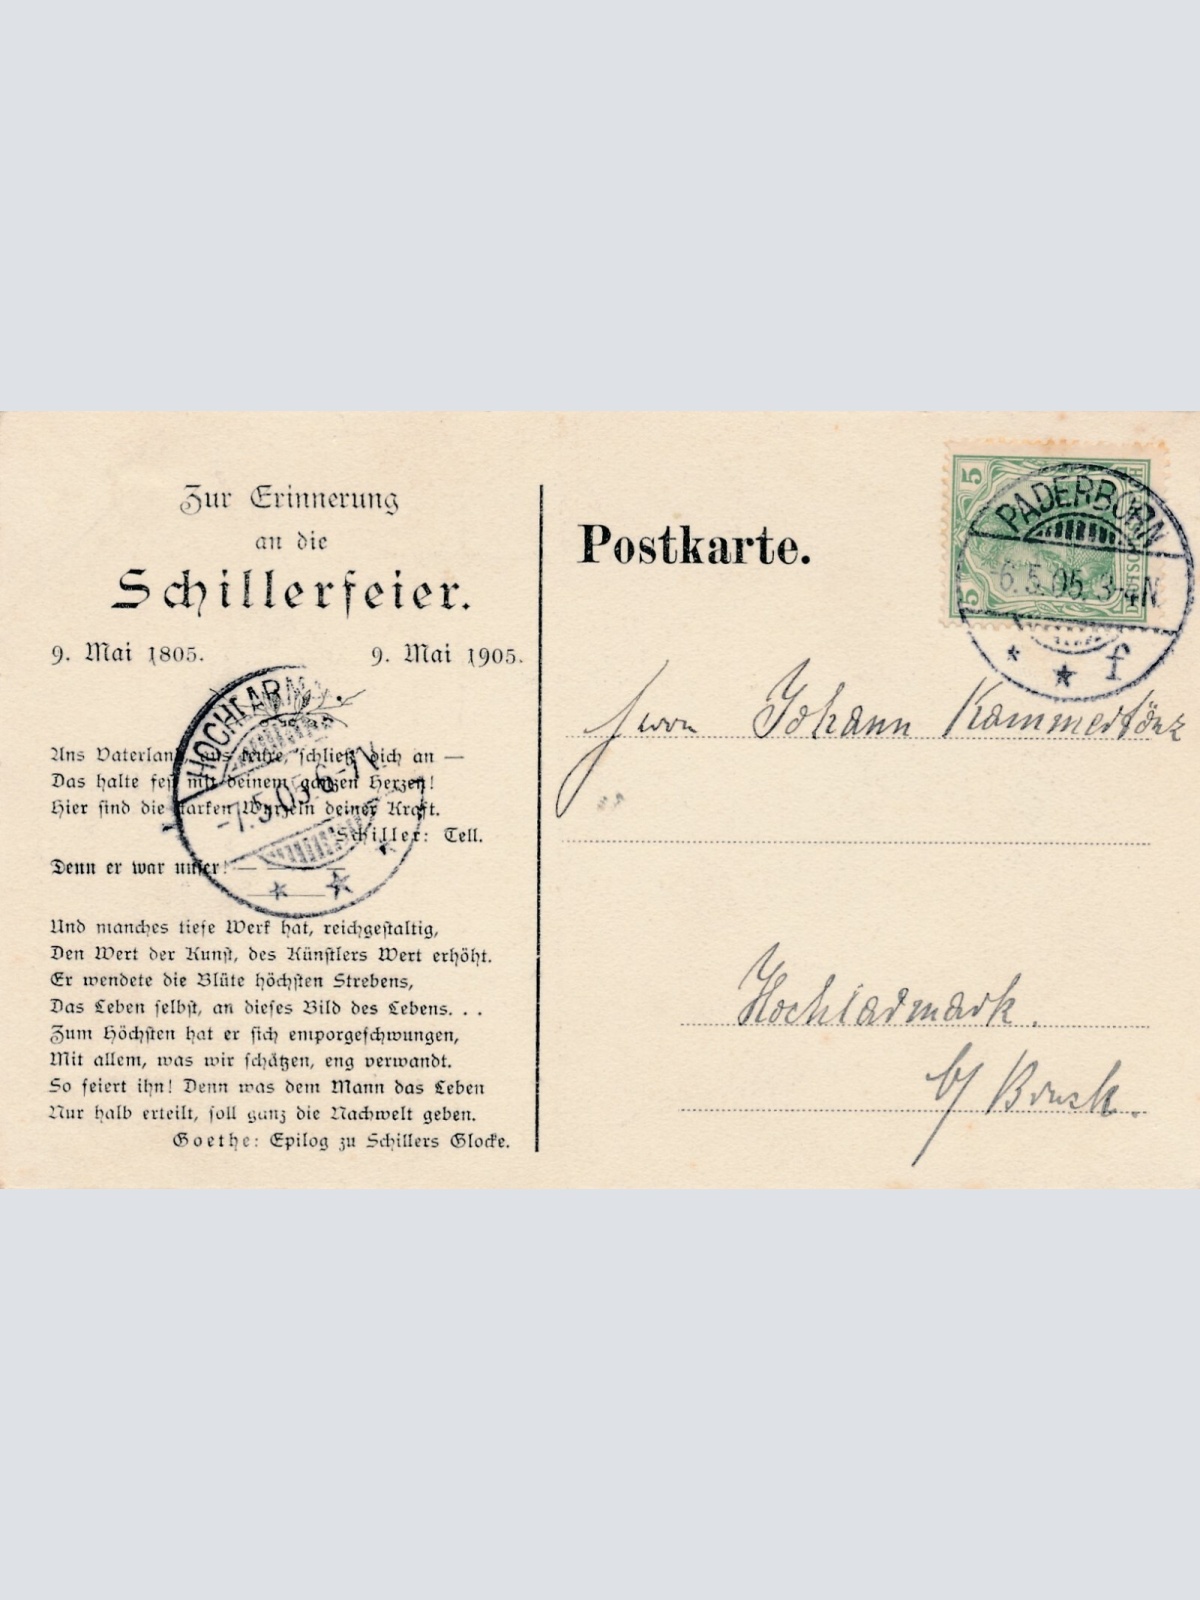 Zur Erinnerung
an die
Schillerfeier.
9. Mai 1805. 9. Mai 1905.
Ans Vaterland, ans teure, schließ dich an —
Das halte fest mit deinem ganzen Herzen!
Hier sind die starken Wurzeln deiner Kraft.
Schiller: Tell.
Denn er war unser! — —
Und manches tiefe Werk hat, reichgestaltig,
Den Wert der Kunst, des Künstlers Wert erhöht.
Er wendete die Blüte höchsten Strebens,
Das Leben selbst, an dieses Bild des Lebens. . .
Zum Höchsten hat er sich emporgeschwungen,
Mit allem, was wir schätzen, eng verwandt.
So feiert ihn! Denn was dem Mann das Leben
Nur halb erteilt, soll ganz die Nachwelt geben.
Goethe: Epilog zu Schillers Glocke.
HOCHLARM
-7.5.05. 6-7
Postkarte.
5
5
PADERBORN
6.5.05. 3-4N.
f
Herrn Johann Kammertöns
Hochlarmark.
b/ Bruch.